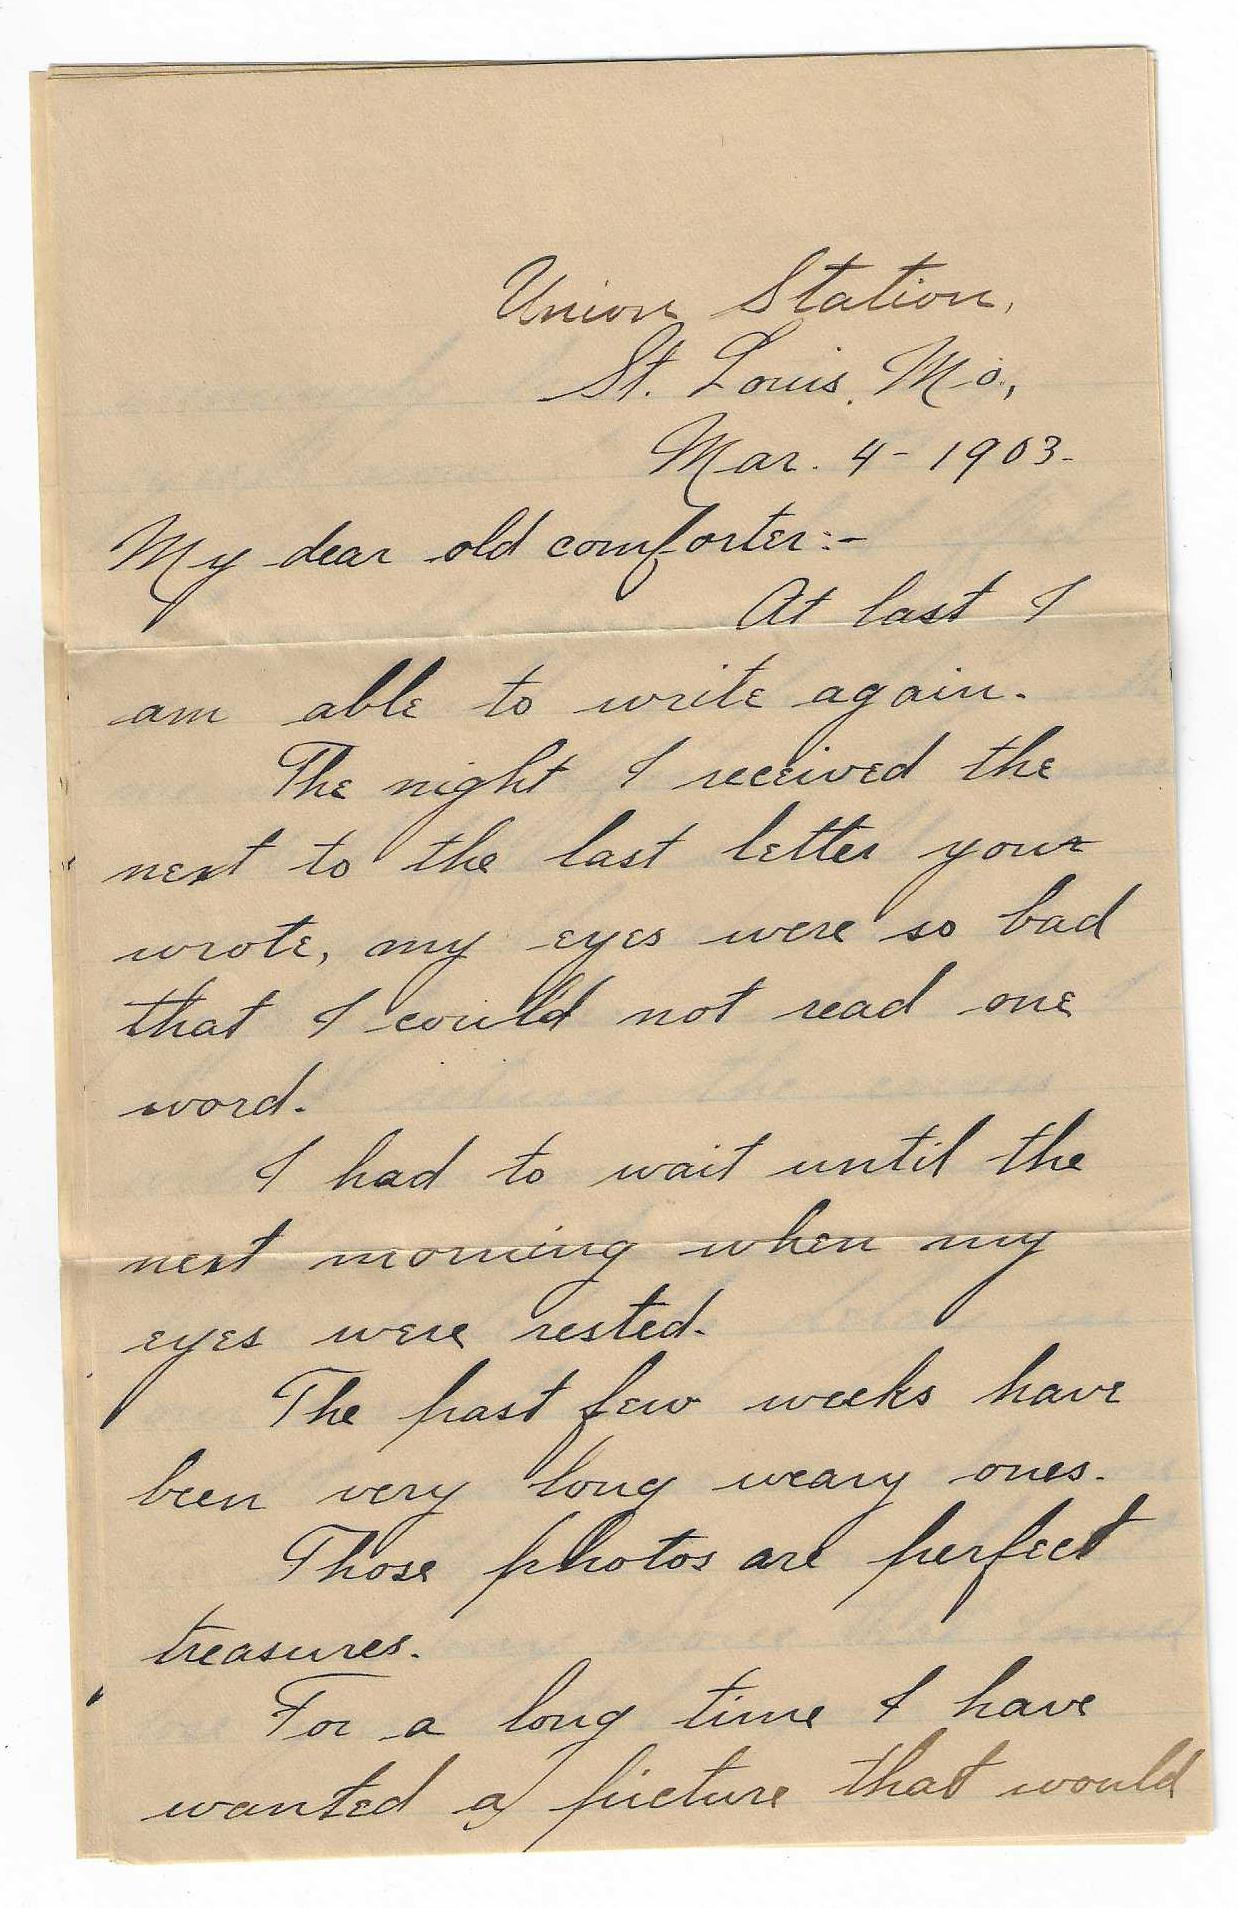 Union Station,
St. Louis, Mo.,
Mar. 4 - 1903.
My dear old comforter:-
At last I
am able to write again.
The night I received the
next to the last letter your
wrote, my eyes were so bad
that I could not read one
word.
I had to wait until the
next morning when my
eyes were rested.
The past few weeks have
been very long weary ones.
Those photos are perfect
treasures.
For a long time I have
wanted a picture that would